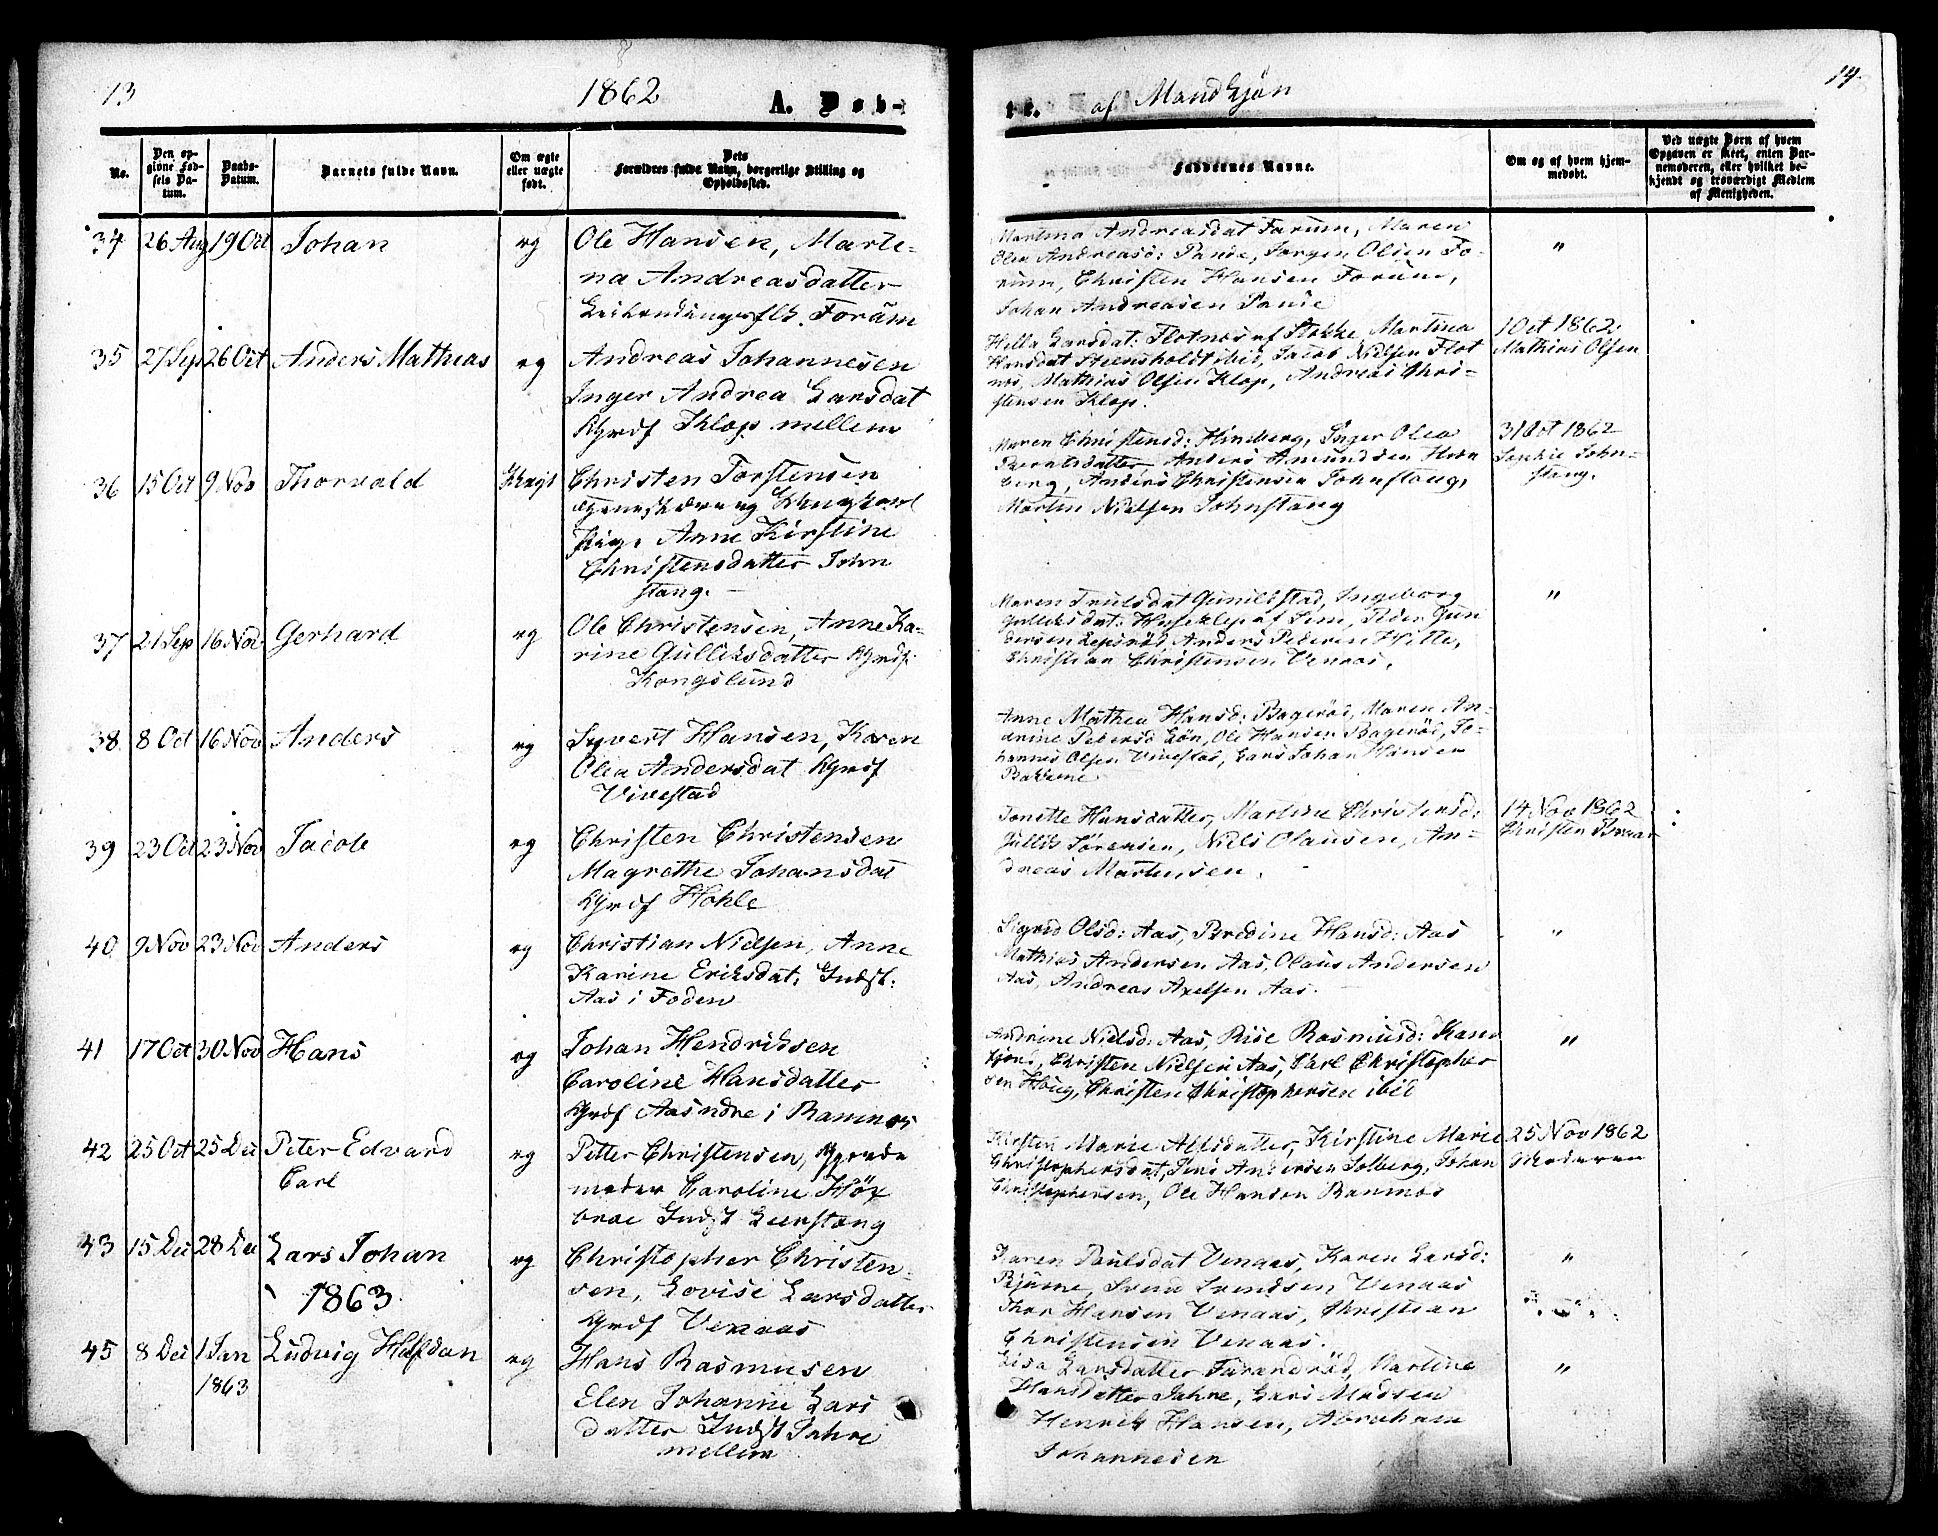 13
1862
A. Døb-
te. af Mandkjøn
14
No.
Den op-
givne Fød-
sels Da-
tum.
Daabs-
Datum.
Barnets fulde Navn.
Om ægte
eller uægte
født.
Dets
Forældres fulde Navn, borgerlige Stilling og
Opholdssted.
Faddernes Navne.
Om og af hvem hjem-
medøbt.
Ved uægte Børn af hvem
Opgaven er skeet, enten Bar-
nemoderen, eller hvilket be-
kjendt og troværdigt Medlem
af Menigheden.
34 26 Aug 19 Oct Johan eg Ole Hansen, Marte-
na Andreasdatter
Forum
Martina Andreasdat Farum, Maren
Olea Andreasd: Pause, Jørgen Olsen Fo-
rum, Christen Hansen Forum,
Johan Andreasen Pause
"
35 27 Sep 26 Oct Anders Mathias eg Andreas Johannesen
Inger Andrea Larsdat
Grdf Klop mellem
Hella Larsdat: Flotnes af Stokke, Martina
Hansdat Steensholdt ibid, Jacob Nielsen Flot
nes, Mathias Olsen Klop, Andreas Chri-
stensen Klop.
1 Oct 1862
Mathias Olsen
36 15 Oct 9 Nov Thorvald Uægt Christen Torstensen
Ungkarl
Pige Anne Kirstine
Christensdatter John
stang.
Maren Christensd: Hineberg, Inger Olea
Berntsdatter Anders Amundsen Hine
berg, Anders Christensen Johnstang,
Martin Nielsen Johnstang
31 Oct 1862
Sophie John-
stang.
37 21 Sep 16 Nov Gerhard eg Ole Christensen, Anne Ka-
rine Gulliksdatter Grdf
Kongslund
Maren Trulsdat Gunildstad, Ingeborg
Gulliksdat: Huseklep af Sem, Peder Gun
dersen Lepsrød Anders Pedersen Hvitte,
Christian Christensen Venaas.
"
38 8 Oct 16 Nov Anders eg Syvert Hansen, Karen
Olea Andersdat Grdf
Vivestad
Anne Mathea Hansd: Bagerød, Maren An-
drine Pedersd Løn, Ole Hansen Bagerød, Jo-
hannes Olsen Vivestad, Lars Johan Hansen
Bakkene
39 23 Oct 23 Nov Jacob eg Christen Christensen
Magrethe Johansdat
Grdf Hohle
Jonette Hansdatter, Martine Christensd:
Gullik Sörensen, Niels Olausen, An-
dreas Martinsen.
14 Nov 1862
Christen
40 9 Nov 23 Nov Anders eg Christian Nielsen, Anne
Karine Eriksdat, Indst:
Aas i Foden
Sigrid Olsd: Aas, Bredine Hansd: Aas
Mathias Andersen Aas, Olaus Andersen
Aas, Andreas Axelsen Aas.
"
41 17 Oct 30 Nov Hans eg Johan Hendriksen
Caroline Hansdatter
Grdf Aasndre i Ramnes
Andrine Nielsd: Aas, Rise Rasmusd: Kam
Christen Nielsen Aas, Carl Christopher
sen Houg, Christen Christophersen ibid
"
42 25 Oct 25 Dec Peter Edvard
Carl eg Petter Christensen,
moder Caroline Höx
broe Indst Leerstang
Kirsten Marie Alfsdatter, Kirstine Marie
Christophersdat, Jens Andersen Solberg, Johan
Christophersen, Ole Hansen Ramnes
25 Nov 1862
Moderen
43 15 Dec 28 Dec Lars Johan eg Christopher Christen-
sen, Lovise Larsdatter
Grdf Venaas
Karen Paulsdat Venaas, Karen Larsd:
Bjune, Svend Svendsen Venaas
Thor Hansen Venaas, Christian
Christensen Venaas.
"
1863
45 8 Dec 1 Jan
1863 Ludvig Halfdan eg Hans Rasmusen
Elen Johanne Lars
datter Indst Jahre
mellem
Lisa Larsdatter Farandrød, Martine
Hansdatter Jahre, Lars Madsen
Henrik Hansen, Abraham
Johannesen
"